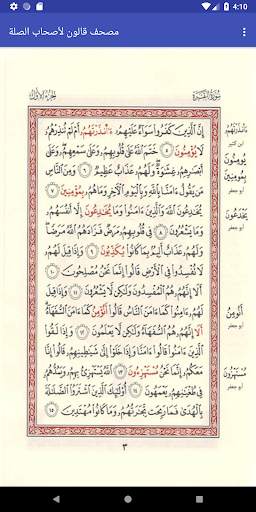 4:10
مصحف قالون لأصحاب الصلة
سُورَةُ الْبَقَرَةِ
الجزء الأول
إِنَّ اَلَّذِينَ كَفَرُواْ سَوَآءٌ عَلَيْهِمُۥٓ ءَآنذَرْتَهُمُۥٓ أَمْ لَمْ تُنذِرْهُمُۥ
لَا يُؤْمِنُونَ ٥ خَتَمَ اَللَّهُ عَلَىٰ قُلُوبِهِمُۥ وَعَلَىٰ سَمْعِهِمُۥ وَعَلَىٰ
أَبْصَٰرِهِمُۥ غِشَٰوَةٌ وَلَهُمُۥ عَذَابٌ عَظِيمٌ ٦ وَمِنَ اَلنَّاسِ
مَنْ يَقُولُ ءَامَنَّا بِاللَّهِ وَبِالْيَوْمِ اِلْأٓخِرِ وَمَا هُمُۥ بِمُؤْمِنِينَ
٧ يُخَٰدِعُونَ اَللَّهَ وَالَّذِينَ ءَامَنُواْ وَمَا يُخَٰدِعُونَ إِلَّا أَنفُسَهُمُۥ
وَمَا يَشْعُرُونَ ٨ فِي قُلُوبِهِمُۥ مَرَضٌ فَزَادَهُمُ اُللَّهُ مَرَضًا
وَلَهُمُۥ عَذَابٌ أَلِيمٌ بِمَا كَانُواْ يُكَذِّبُونَ ٩ وَإِذَا قِيلَ لَهُمُۥ
لَا تُفْسِدُواْ فِي اِلْأَرْضِ قَالُواْ إِنَّمَا نَحْنُ مُصْلِحُونَ ١٠
أَلَا إِنَّهُمُۥ هُمُ اُلْمُفْسِدُونَ وَلَٰكِن لَّا يَشْعُرُونَ ١١ وَإِذَا قِيلَ
لَهُمُۥ ءَامِنُواْ كَمَا ءَامَنَ اَلنَّاسُ قَالُواْ أَنُؤْمِنُ كَمَا ءَامَنَ اَلسُّفَهَآءُ
أَلَا إِنَّهُمُۥ هُمُ اُلسُّفَهَآءُ وَلَٰكِن لَّا يَعْلَمُونَ ١٢ وَإِذَا لَقُواْ
اُلَّذِينَ ءَامَنُواْ قَالُواْ ءَامَنَّا وَإِذَا خَلَوْاْ اِلَىٰ شَيَٰطِينِهِمُۥ قَالُواْ
إِنَّا مَعَكُمُۥ إِنَّمَا نَحْنُ مُسْتَهْزِءُونَ ١٣ اَللَّهُ يَسْتَهْزِئُ بِهِمُۥ وَيَمُدُّهُمُۥ
فِي طُغْيَٰنِهِمُۥ يَعْمَهُونَ ١٤ أُوْلَٰٓئِكَ اَلَّذِينَ اَشْتَرَوُاْ اُلضَّلَٰلَةَ
بِالْهُدَىٰ فَمَا رَبِحَت تِّجَٰرَتُهُمُۥ وَمَا كَانُواْ مُهْتَدِينَ ١٥
٣
ءَآنذَرْتَهُمُۥ
ابن كثير
يُومِنُونَ
بِمُومِنِينَ
أبو جعفر
يَخْدَعُونَ
أبو جعفر
أَنُومِنُ
أبو جعفر
مُسْتَهْزُونَ
أبو جعفر